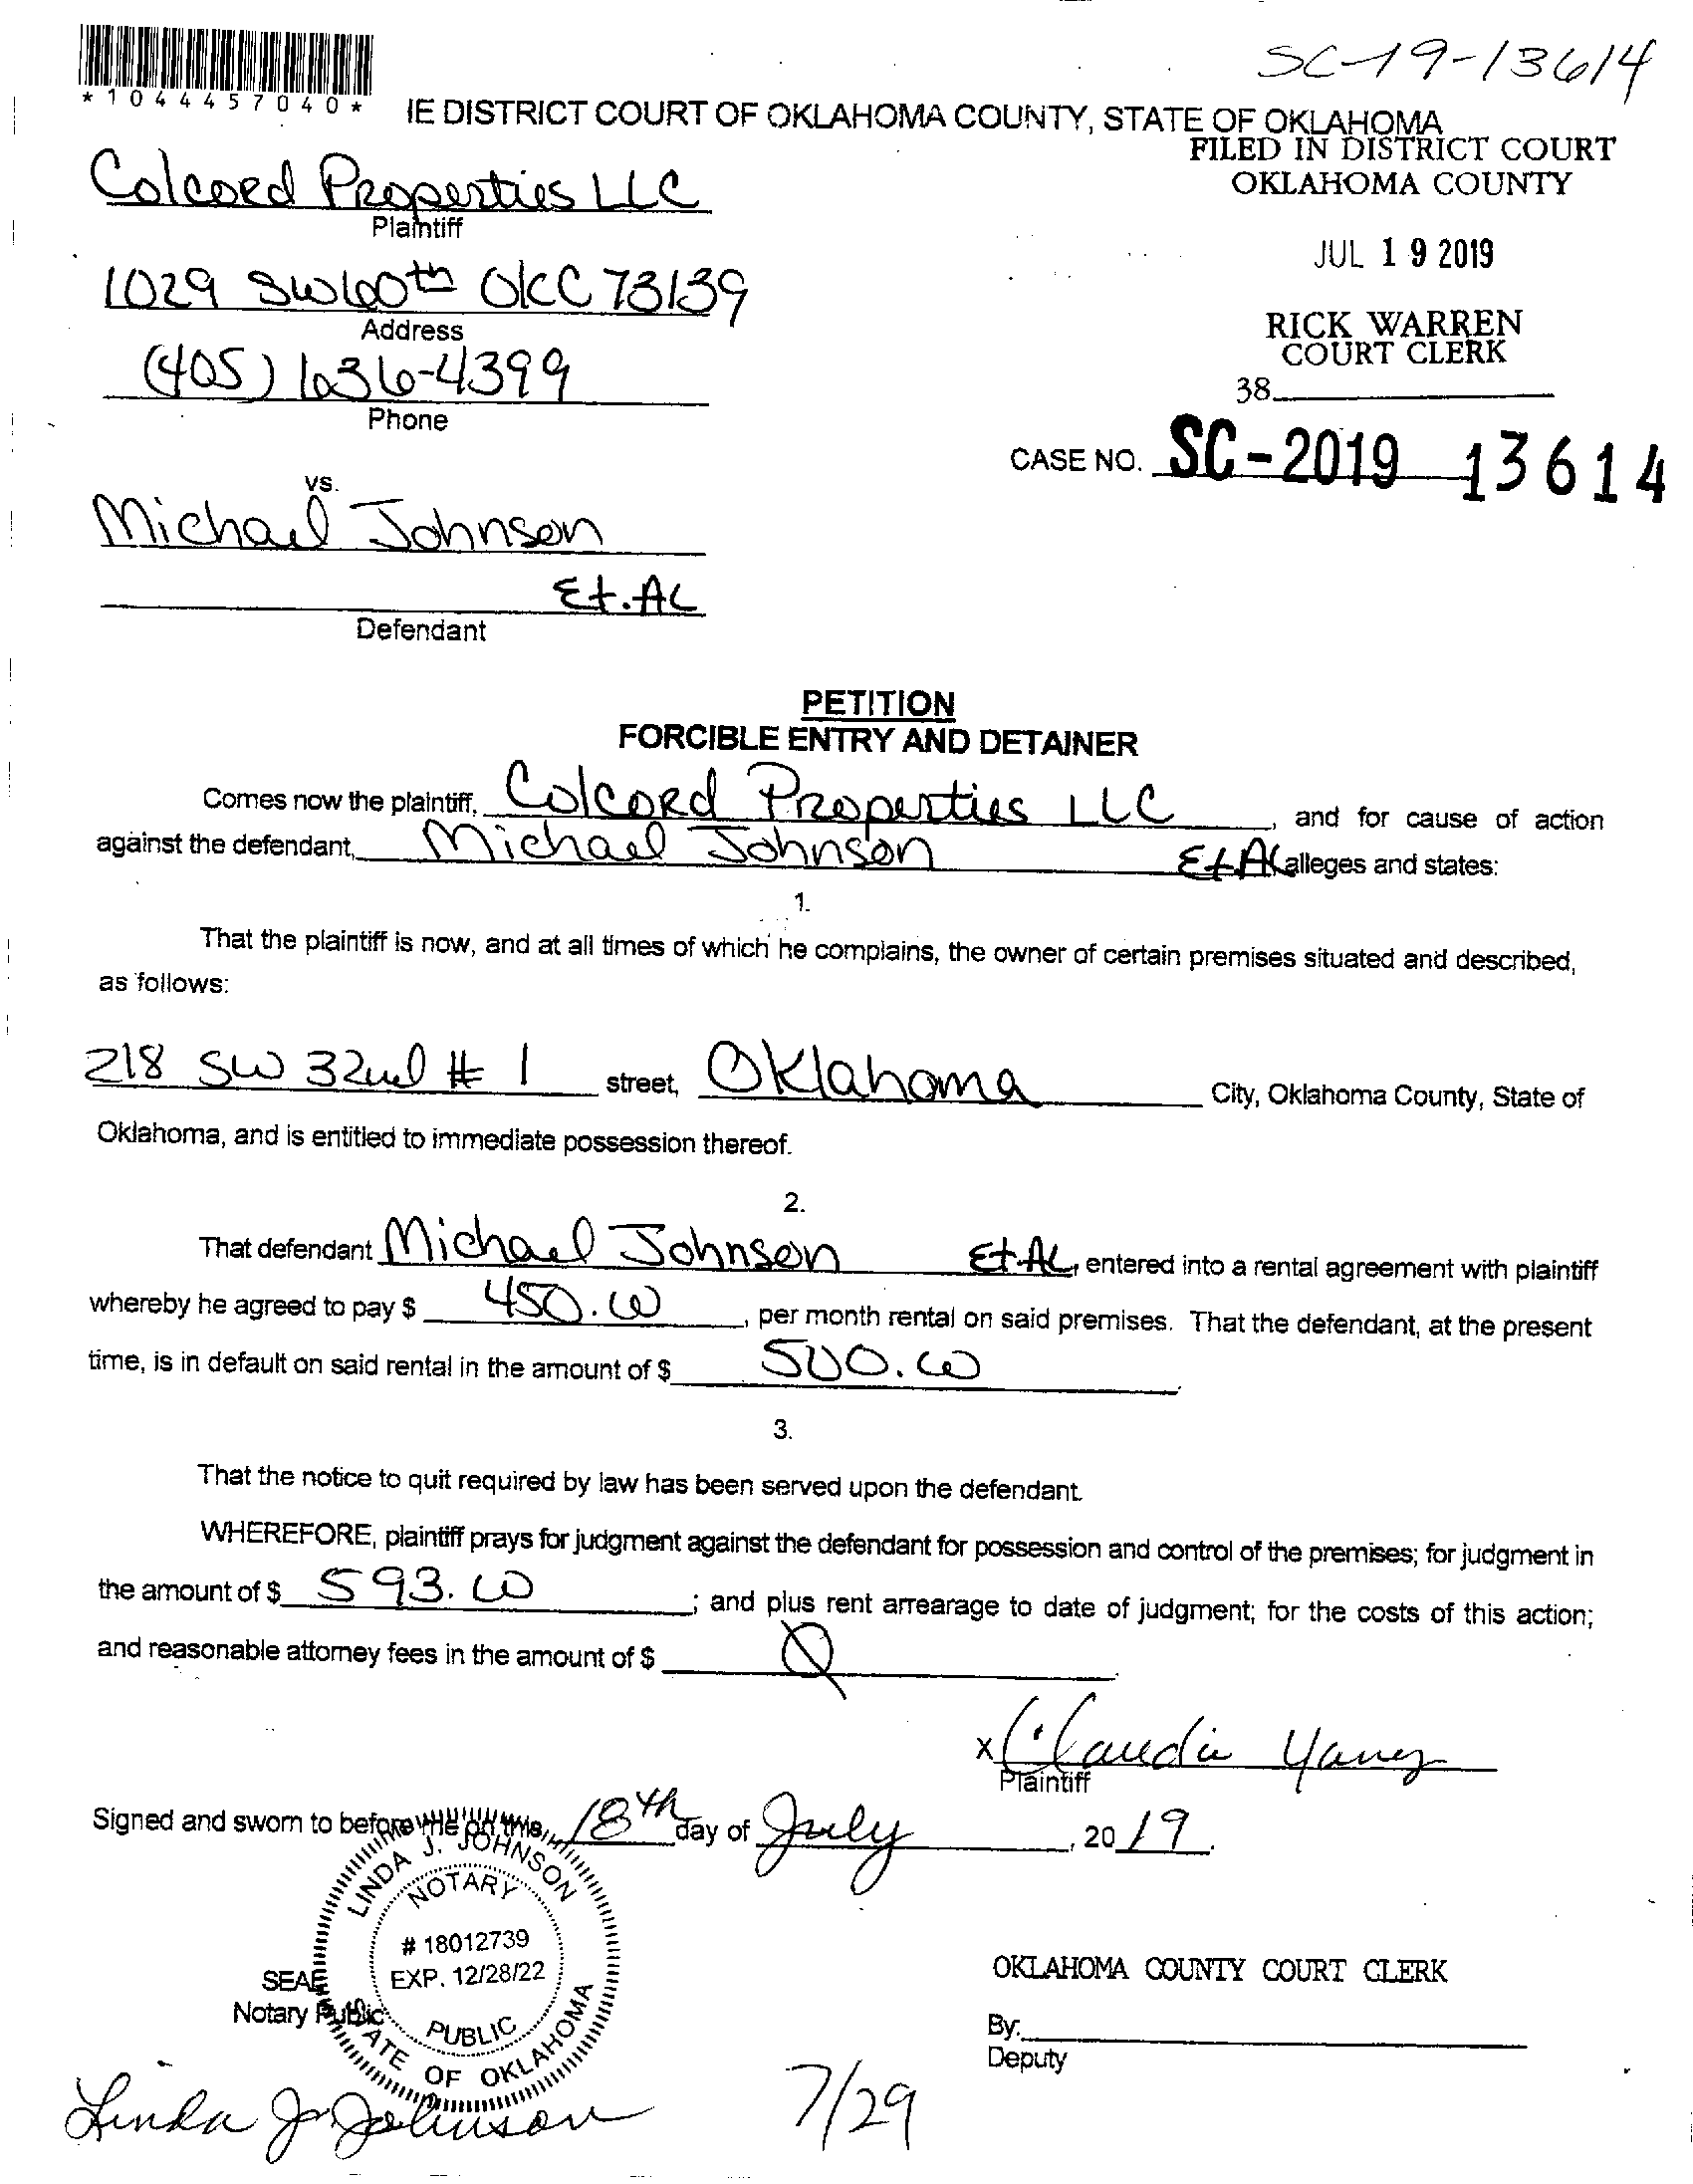 SC-19-13614
*1044457040*
IE DISTRICT COURT OF OKLAHOMA COUNTY, STATE OF OKLAHOMA
FILED IN DISTRICT COURT
OKLAHOMA COUNTY
Colcord Properties LLC
Plaintiff
JUL 19 2019
1029 SW 60th OKC 73139
Address
RICK WARREN
COURT CLERK
(405) 636-4399
Phone
38
CASE NO. SC-2019 13614
vs.
Michael Johnson
Et.AL
Defendant
PETITION
FORCIBLE ENTRY AND DETAINER
Comes now the plaintiff, Colcord Properties LLC, and for cause of action
against the defendant, Michael Johnson Et.AL alleges and states:
1.
That the plaintiff is now, and at all times of which he complains, the owner of certain premises situated and described,
as follows:
218 SW 32nd # 1 street, Oklahoma City, Oklahoma County, State of
Oklahoma, and is entitled to immediate possession thereof.
2.
That defendant Michael Johnson Et.AL, entered into a rental agreement with plaintiff
whereby he agreed to pay $ 450.00, per month rental on said premises. That the defendant, at the present
time, is in default on said rental in the amount of $ 500.00
3.
That the notice to quit required by law has been served upon the defendant.
WHEREFORE, plaintiff prays for judgment against the defendant for possession and control of the premises; for judgment in
the amount of $ 593.00; and plus rent arrearage to date of judgment; for the costs of this action;
and reasonable attorney fees in the amount of $ 0
x Claudia Yanez
Plaintiff
Signed and sworn to before me on this 18th day of July, 2019.
LINDA J. JOHNSON
NOTARY
# 18012739
EXP. 12/28/22
PUBLIC
STATE OF OKLAHOMA
SEAL
Notary Public
OKLAHOMA COUNTY COURT CLERK
By:
Deputy
Linda J. Johnson
7/29